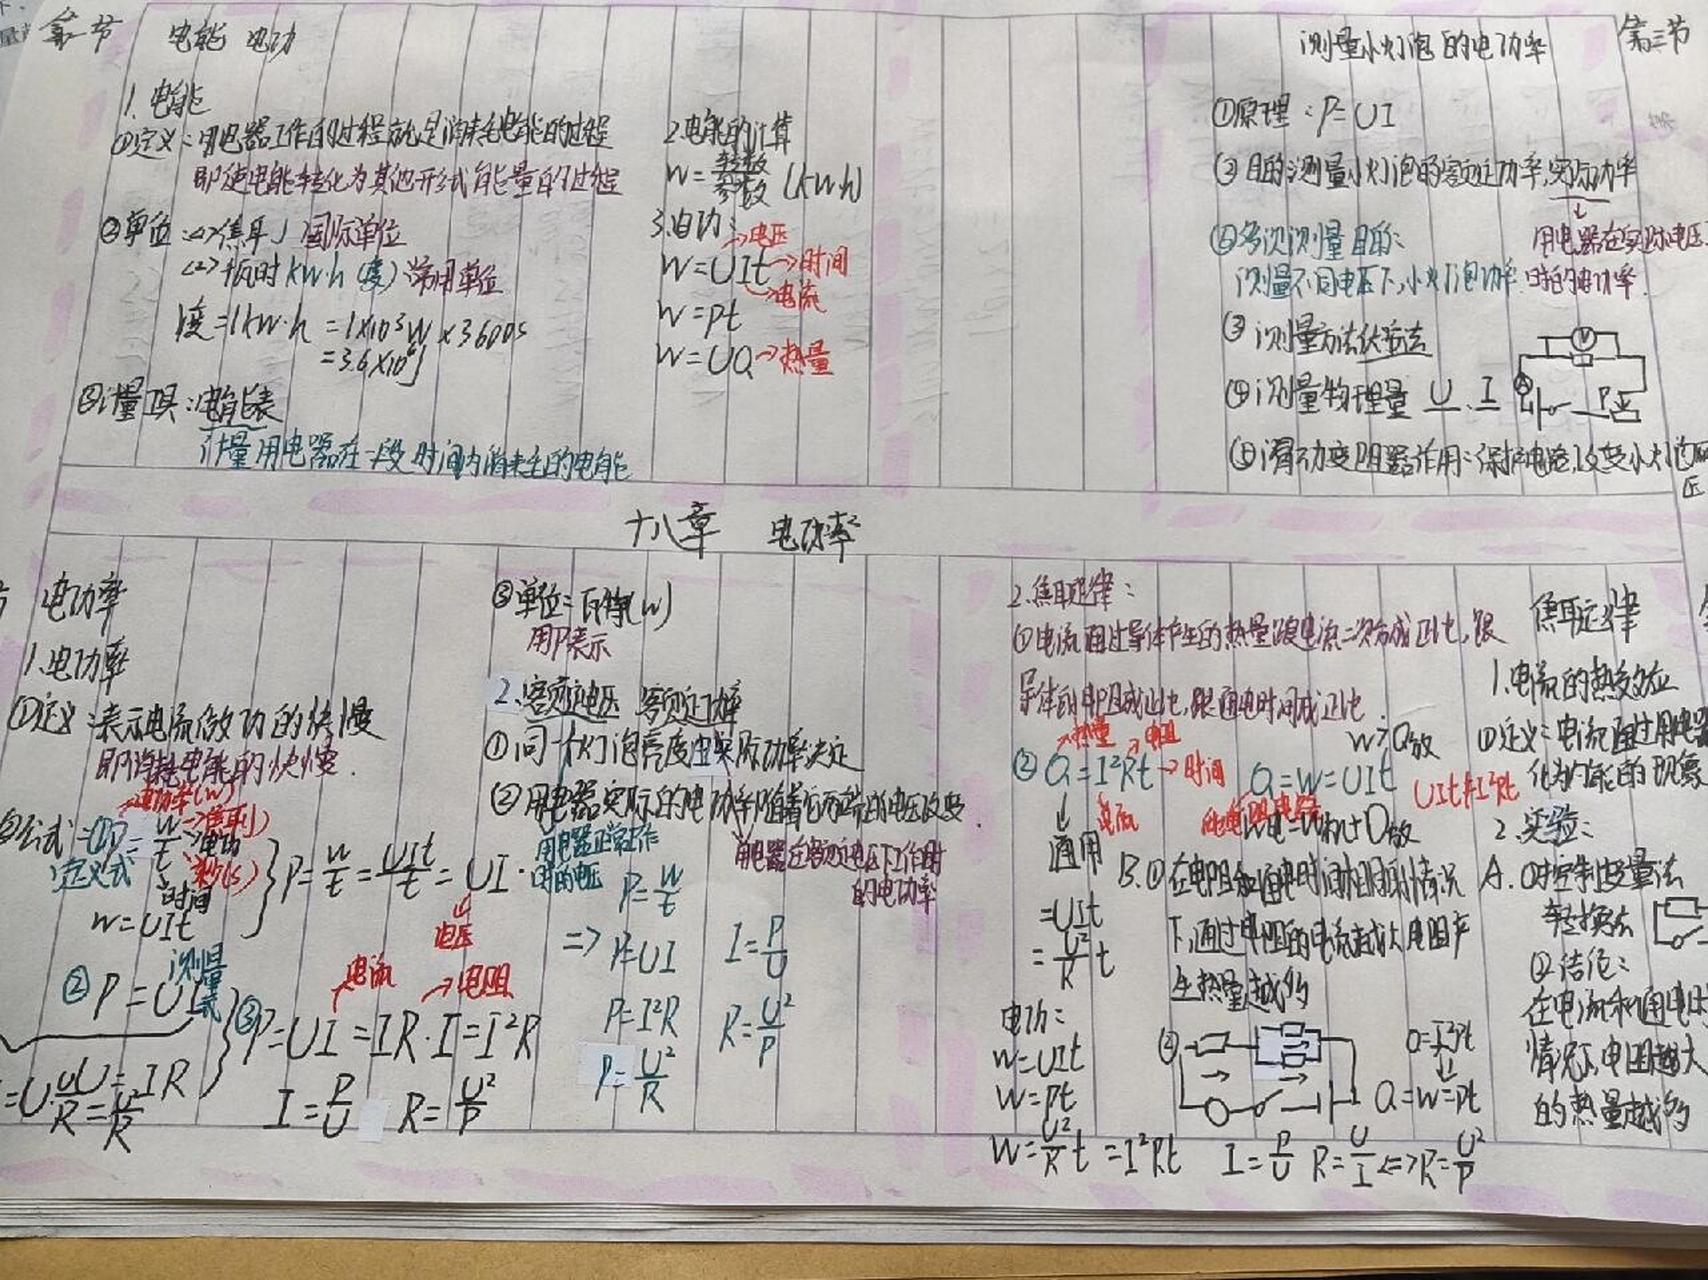 第一节 电能 电功
1. 电能
①定义：用电器工作的过程就是消耗电能的过程
即使电能转化为其他形式能量的过程
②单位：<1>焦耳J 国际单位
<2>千瓦时 kW·h (度) 常用单位
1度=1kW·h =1×10³W×3600s
=3.6×10⁶J
③计量工具：电能表
计量用电器在一段时间内消耗的电能
2.电能的计算
W=转数/参数 (kW·h)
3.电功：
→电压
W=UIt→时间
→电流
W=Pt
W=UQ→热量
测量小灯泡的电功率 第三节
①原理：P=UI
②目的：测量小灯泡的额定功率,实际功率
用电器在实际电压
时的电功率
多次测量目的：
测量不同电压下,小灯泡功率
③测量方法伏安法
④测量物理量 U、I
V
A
P
⑤滑动变阻器作用：保护电路,改变小灯泡
压
十八章 电功率
节 电功率
1.电功率
①定义：表示电流做功的快慢
即消耗电能的快慢.
→电功率(W)
②公式=①P=W/t →焦耳(J)
→电功
定义式 秒(s)
时间
W=UIt
P=W/t=UIt/t=UI.
电压
②P=UI 测量式
电流 →电阻
③P=UI=IR·I=I²R
I=P/U R=U²/P
③单位：瓦特(W)
用P表示
2.额定电压 额定功率
①同一灯泡亮度由实际功率决定
②用电器实际的电功率随着它两端的电压改变.
用电器正常工作
时的电压
用电器在额定电压下工作时
的电功率
P=W/t
=>P=UI I=P/U
P=I²R R=U²/P
P=U²/R
2.焦耳定律：
①电流通过导体产生的热量跟电流二次方成正比,跟
导体的电阻成正比,跟通电时间成正比
→热量 →电阻
②Q=I²Rt→时间
电流
W>Q放
Q=W=UIt
UIt≠I²Rt
通用
=UIt
=U²/R t
B.①在电阻和通电时间相同的情况
下,通过电阻的电流越大电阻产
生热量越多
②
电功：
W=UIt
W=Pt
W=U²/R t =I²Rt
Q=I²Rt
Q=W=Pt
I=P/U R=U/I <=>R=U²/P
焦耳定律
1.电流的热效应
①定义：电流通过用电器
化为内能的现象
2.实验：
A.①控制变量法
转换法
②结论：
在电流和通电时
情况下,电阻越大
的热量越多